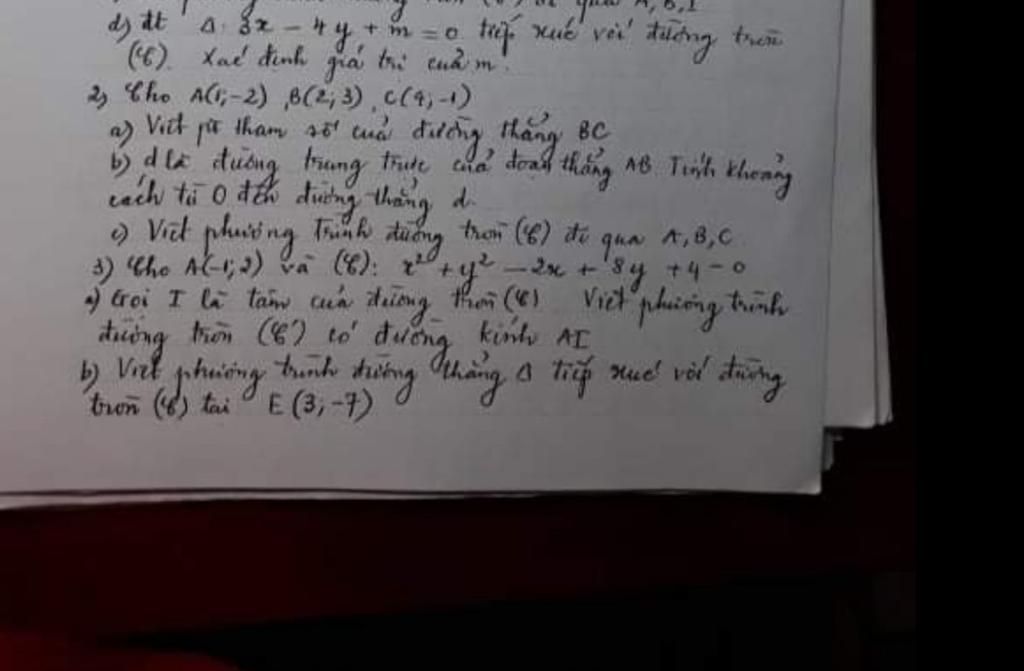 qua A, B, I
d) đt Δ: 3x - 4y + m = 0 tiếp xúc với đường tròn
(C). Xác định giá trị của m.
2) Cho A(1;-2), B(2;3), C(4;-1)
a) Viết pt tham số của đường thẳng BC
b) d là đường trung trực của đoạn thẳng AB. Tính khoảng
cách từ O đến đường thẳng d.
c) Viết phương trình đường tròn (C) đi qua A, B, C.
3) Cho A(-1;2) và (C): x² + y² - 2x + 8y + 4 = 0
a) Gọi I là tâm của đường tròn (C) Viết phương trình
đường tròn (C') có đường kính AI
b) Viết phương trình đường thẳng Δ tiếp xúc với đường
tròn (C) tại E(3;-7)